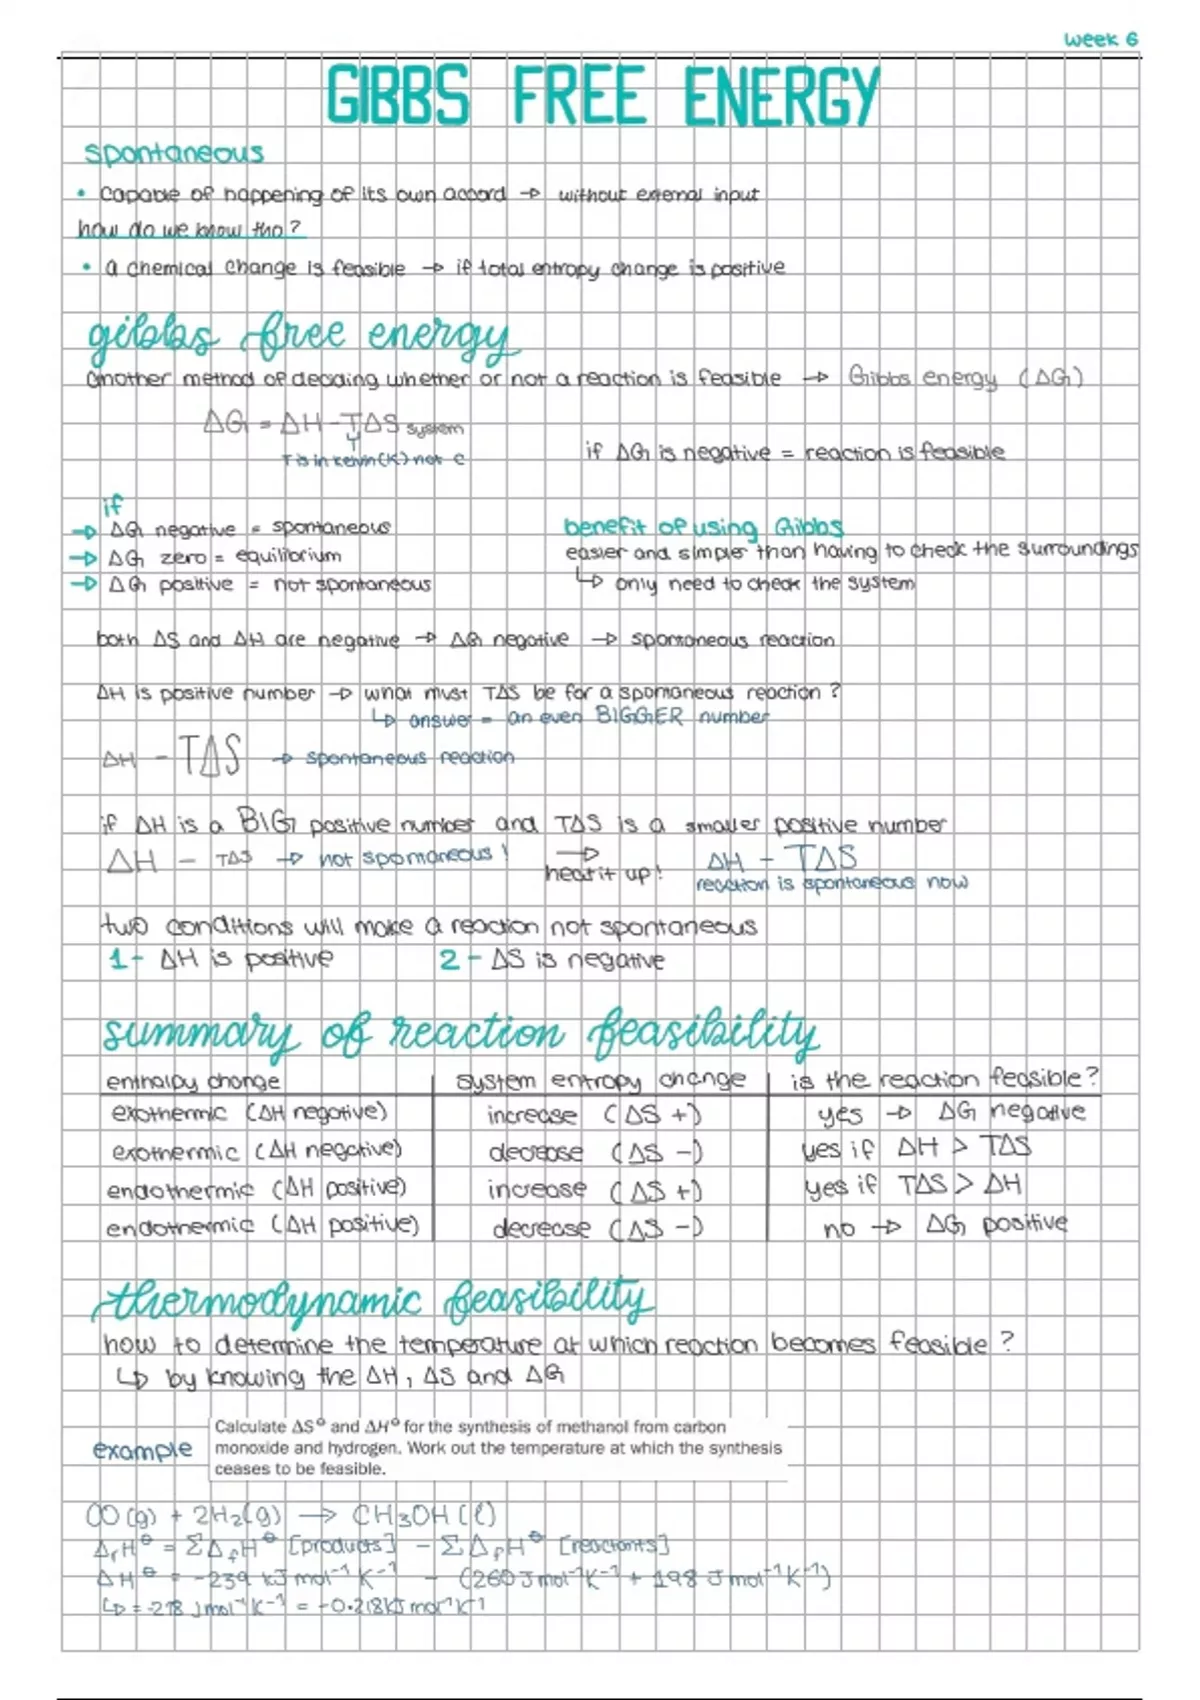 week 6
GIBBS FREE ENERGY
spontaneous
• capable of happening of its own accord → without external input
how do we know tho?
• a chemical change is feasible → if total entropy change is positive
gibbs free energy
another method of deciding whether or not a reaction is feasible → Gibbs energy (ΔG)
ΔG = ΔH - TΔS system
T is in kelvin (K) not C
if ΔG is negative = reaction is feasible
if
→ ΔG negative = spontaneous
→ ΔG zero = equilibrium
→ ΔG positive = not spontaneous
benefit of using Gibbs
easier and simpler than having to check the surroundings
↳ only need to check the system
both ΔS and ΔH are negative → ΔG negative → spontaneous reaction
ΔH is positive number → what must TΔS be for a spontaneous reaction?
↳ answer = an even BIGGER number
ΔH - TΔS → spontaneous reaction
if ΔH is a BIG positive number and TΔS is a smaller positive number
ΔH - TΔS → not spontaneous! → heat it up! ΔH - TΔS
reaction is spontaneous now
two conditions will make a reaction not spontaneous
1 - ΔH is positive 2 - ΔS is negative
summary of reaction feasibility
enthalpy change system entropy change is the reaction feasible?
exothermic (ΔH negative) increase (ΔS +) yes → ΔG negative
exothermic (ΔH negative) decrease (ΔS -) yes if ΔH > TΔS
endothermic (ΔH positive) increase (ΔS +) yes if TΔS > ΔH
endothermic (ΔH positive) decrease (ΔS -) no → ΔG positive
thermodynamic feasibility
how to determine the temperature at which reaction becomes feasible?
↳ by knowing the ΔH, ΔS and ΔG
example
Calculate ΔS⦵ and ΔH⦵ for the synthesis of methanol from carbon
monoxide and hydrogen. Work out the temperature at which the synthesis
ceases to be feasible.
CO(g) + 2H₂(g) → CH₃OH(l)
ΔrH⦵ = ΣΔfH⦵ [products] - ΣΔfH⦵ [reactants]
ΔH⦵ = -239 kJ mol⁻¹ K⁻¹ - (260 J mol⁻¹ K⁻¹ + 198 J mol⁻¹ K⁻¹)
↳ = -218 J mol⁻¹ K⁻¹ = -0.218 kJ mol⁻¹ K⁻¹